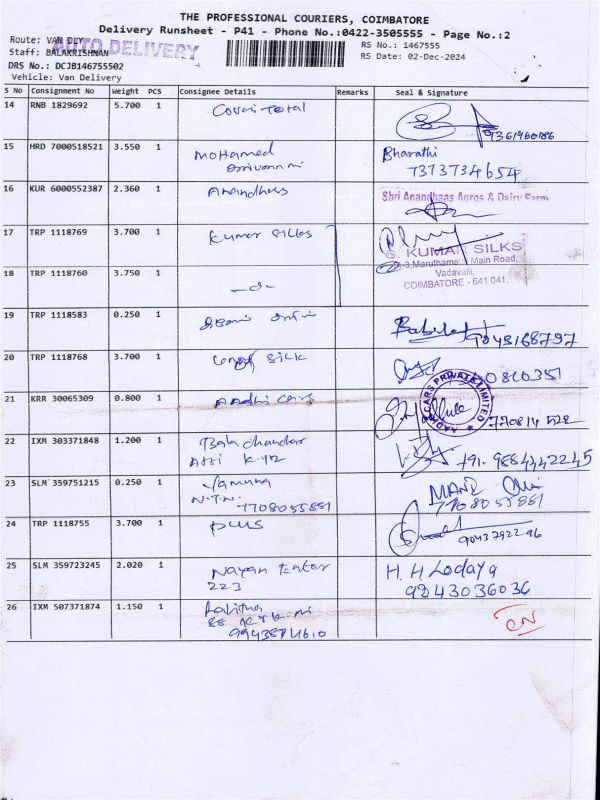 THE PROFESSIONAL COURIERS, COIMBATORE
Delivery Runsheet - P41 - Phone No.:0422-3505555 - Page No.:2
Route: VAN DLY
AUTO DELIVERY
Staff: BALAKRISHNAN
RS No.: 1467555
DRS No.: DCJB146755502
RS Date: 02-Dec-2024
Vehicle: Van Delivery
S No Consignment No Weight PCS Consignee Details Remarks Seal & Signature
14 RNB 1829692 5.700 1 Total
9361960186
15 HRD 7000518521 3.550 1 Mohamed Bharathi
7373734654
16 KUR 6000552387 2.360 1 Shri Anandhaas Agros & Dairy Farm
17 TRP 1118769 3.700 1 Kumar Silks
S. KUMAR SILKS
Maruthamalai Main Road,
Vadavalli,
COIMBATORE - 641 041.
18 TRP 1118760 3.750 1
19 TRP 1118583 0.250 1
9043168797
20 TRP 1118768 3.700 1 Silk
21 KRR 30065309 0.800 1 Aadhi Cars
AADHI CARS PRIVATE LIMITED
22 IXM 303371848 1.200 1 Bala Chandar
+91. 9884442245
23 SLM 359751215 0.250 1 Yamuna MANI
N.T.N. 7708055881 7708055881
24 TRP 1118755 3.700 1 Plus
25 SLM 359723245 2.020 1 Nayan Enter H. H Lodaya
223 9843036036
26 IXM 507371874 1.150 1 Lalitha